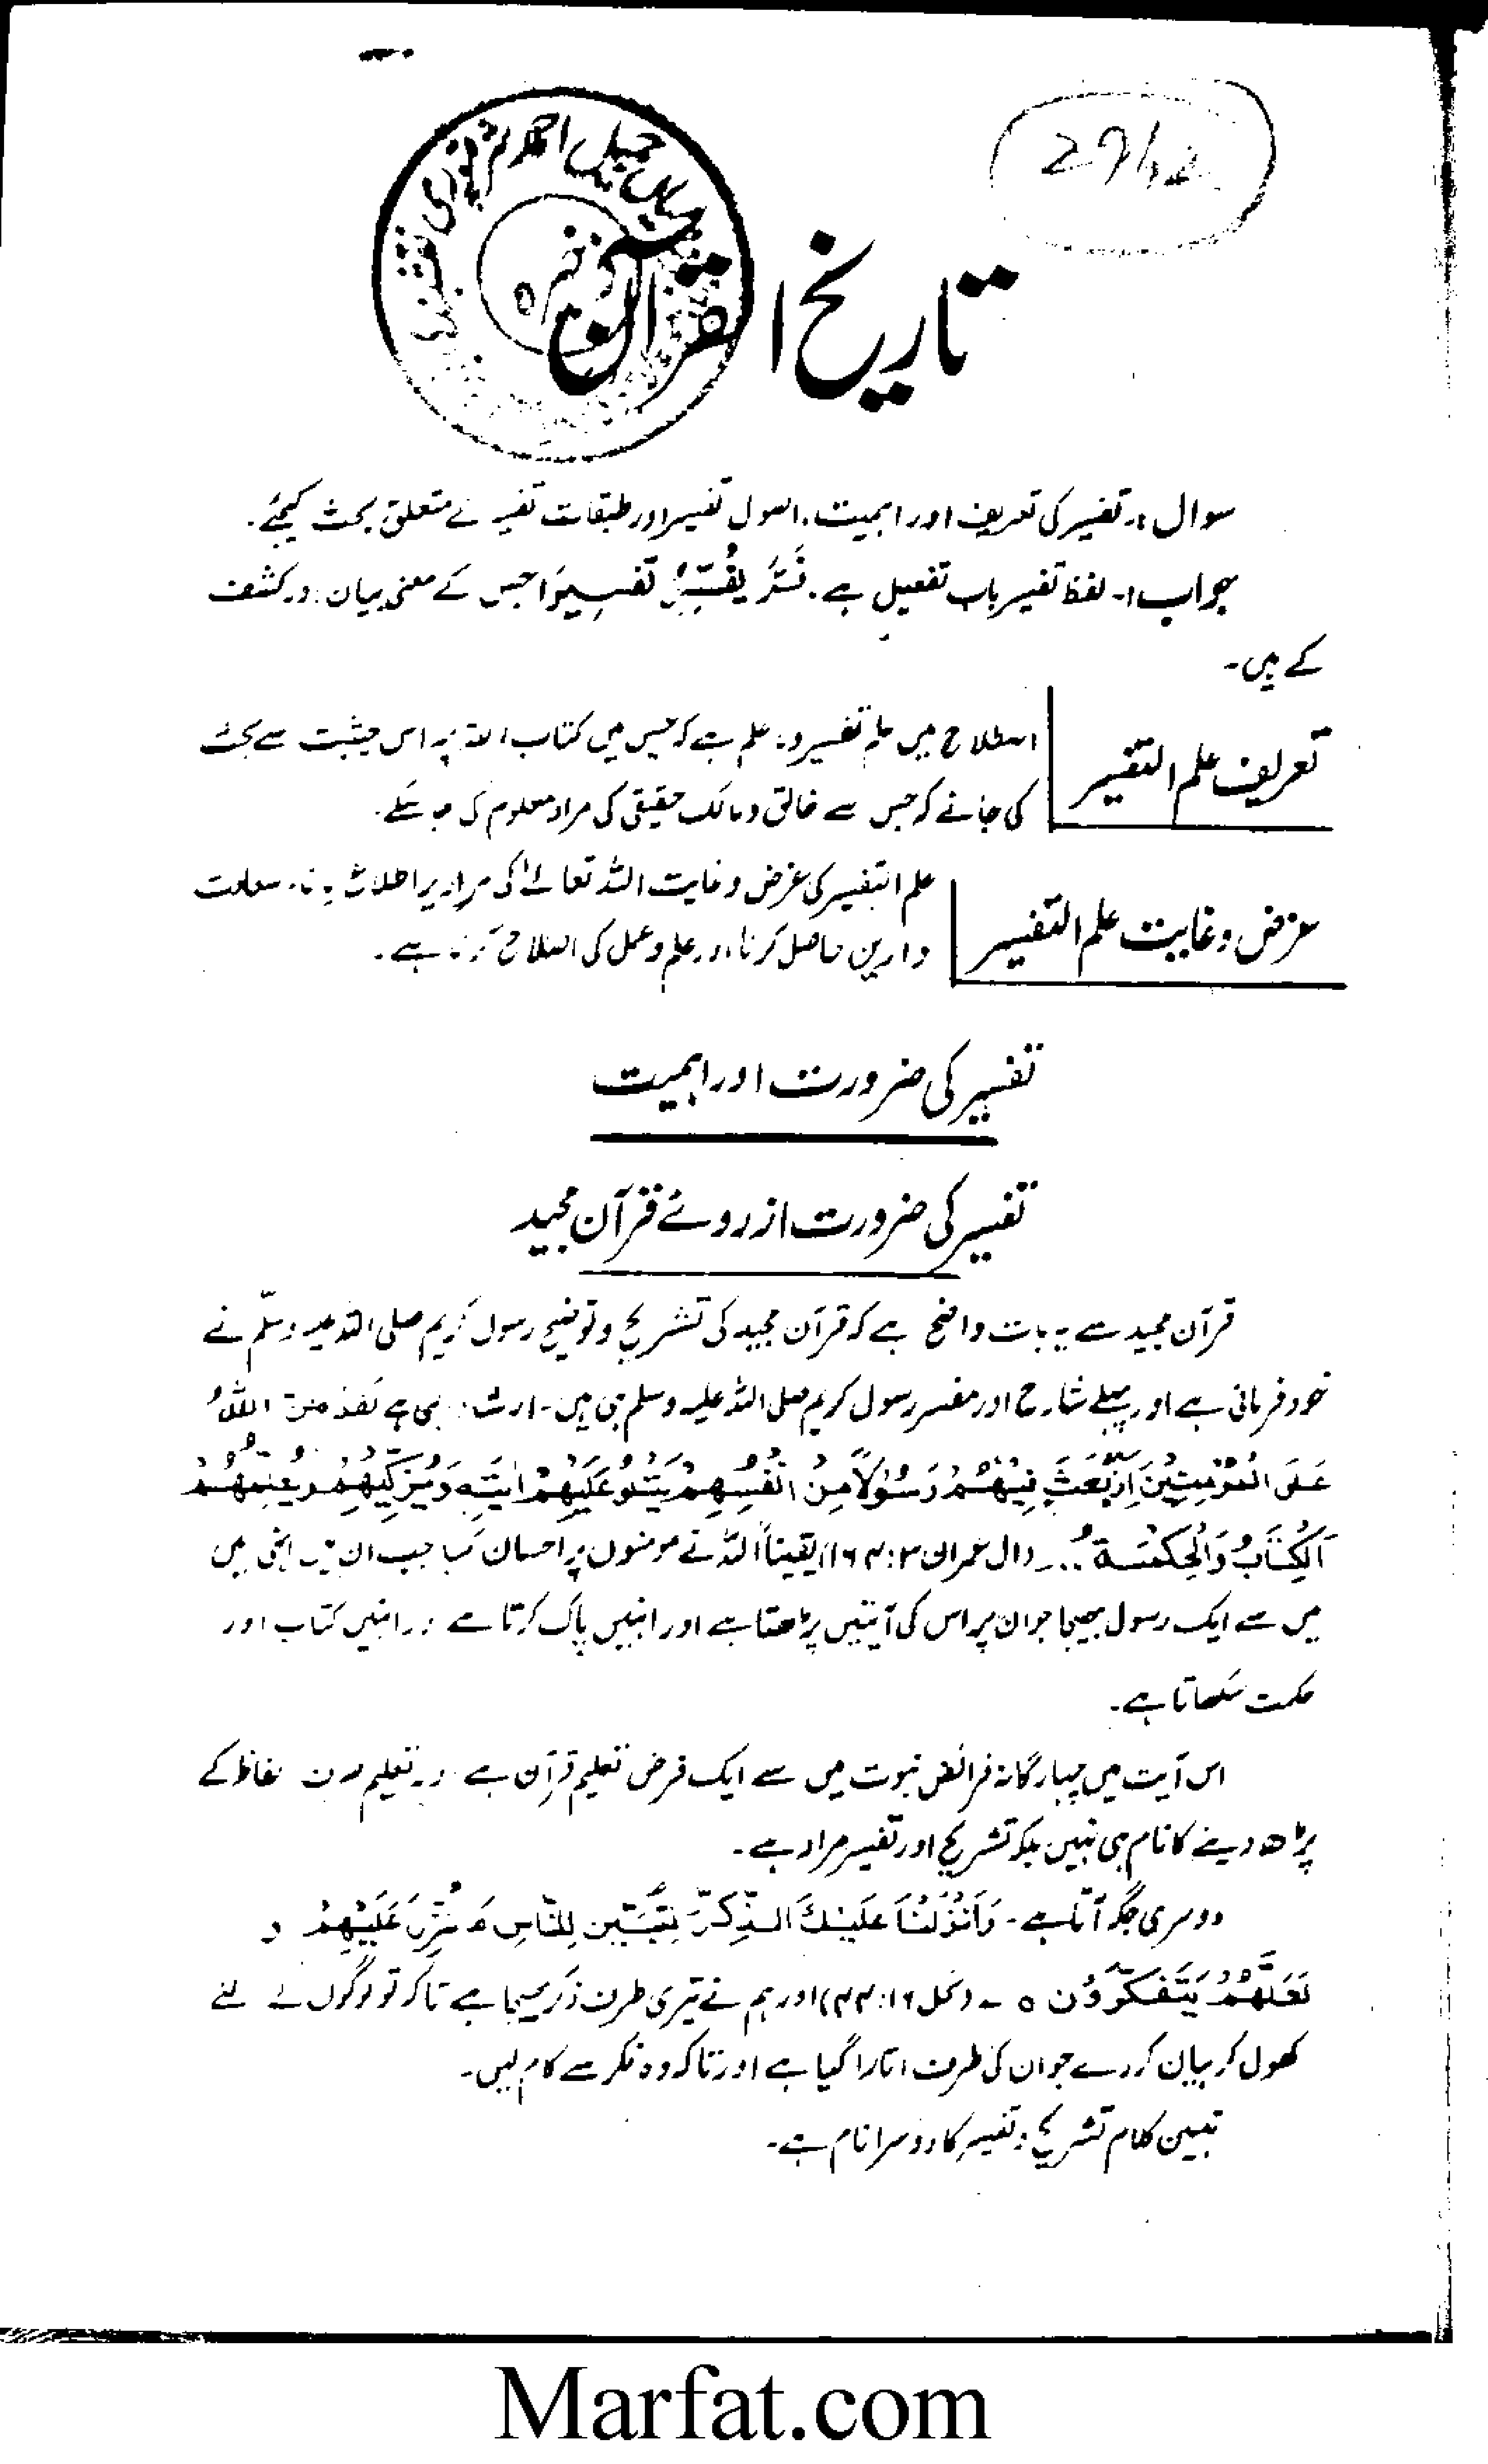 تاریخ القرآن
سوال:۔ تفسیر کی تعریف اور اہمیت، اصول تفسیر اور طبقات تفسیر سے متعلق بحث کیجئے۔
جواب:۔ لفظ تفسیر باب تفعیل ہے۔ فَسَّرَ یُفَسِّرُ تَفْسِیْرًا جس کے معنی بیان اور کشف
کے ہیں۔
تعریف علم التفسیر
اصطلاح میں علم تفسیر وہ علم ہے کہ جس میں کتاب اللہ پر اس حیثیت سے بحث
کی جائے کہ جس سے خالق و مالک حقیقی کی مراد معلوم کی جا سکے۔
غرض و غایت علم التفسیر
علم التفسیر کی غرض و غایت اللہ تعالےٰ کی مراد پر اطلاع پانا۔ سعادت
دارین حاصل کرنا اور علم و عمل کی اصلاح کرنا ہے۔
تفسیر کی ضرورت اور اہمیت
تفسیر کی ضرورت از روئے قرآن مجید
قرآن مجید سے یہ بات واضح ہے کہ قرآن مجید کی تشریح و توضیح رسول کریم صلی اللہ علیہ وسلّم نے
خود فرمائی ہے اور پہلے شارح اور مفسر رسول کریم صلی اللہ علیہ وسلم ہی ہیں۔ ارشاد ربی ہے لَقَدْ مَنَّ اللّٰہُ
عَلَی الْمُؤْمِنِیْنَ اِذْ بَعَثَ فِیْھِمْ رَسُوْلاً مِنْ اَنْفُسِھِمْ یَتْلُوْ عَلَیْھِمْ اٰیٰتِہٖ وَیُزَکِّیْھِمْ وَیُعَلِّمُھُمُ
الْکِتَابَ وَالْحِکْمَۃَ ... (اٰل عمران ۳:۱۶۴) یقیناً اللہ نے مومنوں پر احسان کیا جب ان میں انہی میں
میں سے ایک رسول بھیجا جو ان پر اس کی آیتیں پڑھتا ہے اور انہیں پاک کرتا ہے اور انہیں کتاب اور
حکمت سکھاتا ہے۔
اس آیت میں چہارگانہ فرائض نبوت میں سے ایک فرض تعلیم قرآن ہے اور یہ تعلیم صرف الفاظ کے
پڑھ دینے کا نام ہی نہیں بلکہ تشریح اور تفسیر مراد ہے۔
دوسری جگہ آتا ہے۔ وَاَنْزَلْنَا عَلَیْکَ الذِّکْرَ لِتُبَیِّنَ لِلنَّاسِ مَا نُزِّلَ عَلَیْھِمْ وَ
لَعَلَّھُمْ یَتَفَکَّرُوْنَ ہ ۔ (نحل ۱۶:۴۴) اور ہم نے تیری طرف ذکر بھیجا ہے تاکہ تو لوگوں کے لئے
کھول کر بیان کر دے جو ان کی طرف اتارا گیا ہے اور تاکہ وہ فکر سے کام لیں۔
تبیین کلام تشریح و تفسیر کا دوسرا نام ہے۔
Marfat.com